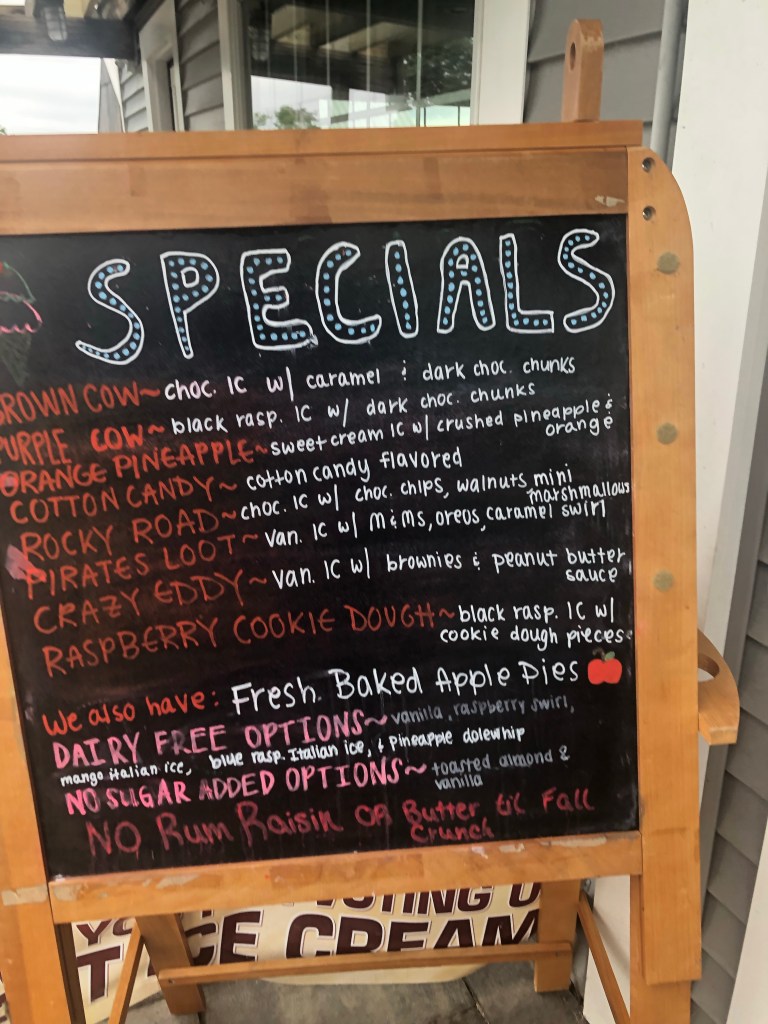 SPECIALS
BROWN COW~ choc. IC w/ caramel & dark choc. chunks
PURPLE COW~ black rasp. IC w/ dark choc. chunks
ORANGE PINEAPPLE~ sweet cream IC w/ crushed pineapple &
orange
COTTON CANDY~ cotton candy flavored
ROCKY ROAD~ choc. IC w/ choc. chips, walnuts, mini
marshmallows
PIRATES LOOT~ van. IC w/ M&MS, oreos, caramel swirl
CRAZY EDDY~ van. IC w/ brownies & peanut butter
sauce
RASPBERRY COOKIE DOUGH~ black rasp. IC w/
cookie dough pieces
We also have: Fresh Baked Apple Pies
DAIRY FREE OPTIONS~ vanilla, raspberry swirl,
mango italian ice, blue rasp. Italian ice, & Pineapple dolewhip
NO SUGAR ADDED OPTIONS~ toasted almond &
vanilla
NO Rum Raisin OR Butter til Fall
Crunch
ICE CREAM